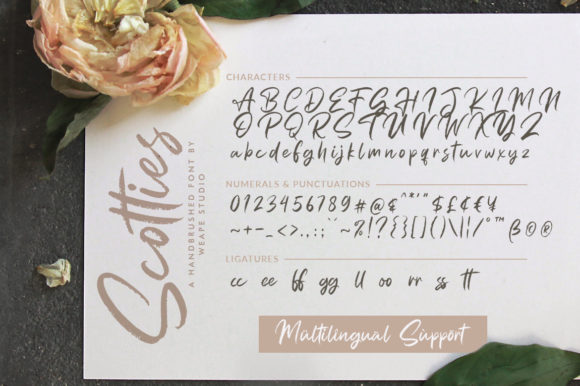 Scotties
A HANDBRUSHED FONT BY
WEAPE STUDIO
CHARACTERS
A B C D E F G H I J K L M N
O P Q R S T U V W X Y Z
a b c d e f g h i j k l m n o p q r s t u v w x y z
NUMERALS & PUNCTUATIONS
0 1 2 3 4 5 6 7 8 9 # @ ¢ ^ * ' " $ £ € ¥
~ + - _ < > . , : ; ` ~ % ! ? { } [ ] ( ) \ | / ° ™ β © ®
LIGATURES
cc ee ff gg ll oo rr ss tt
Multilingual Support